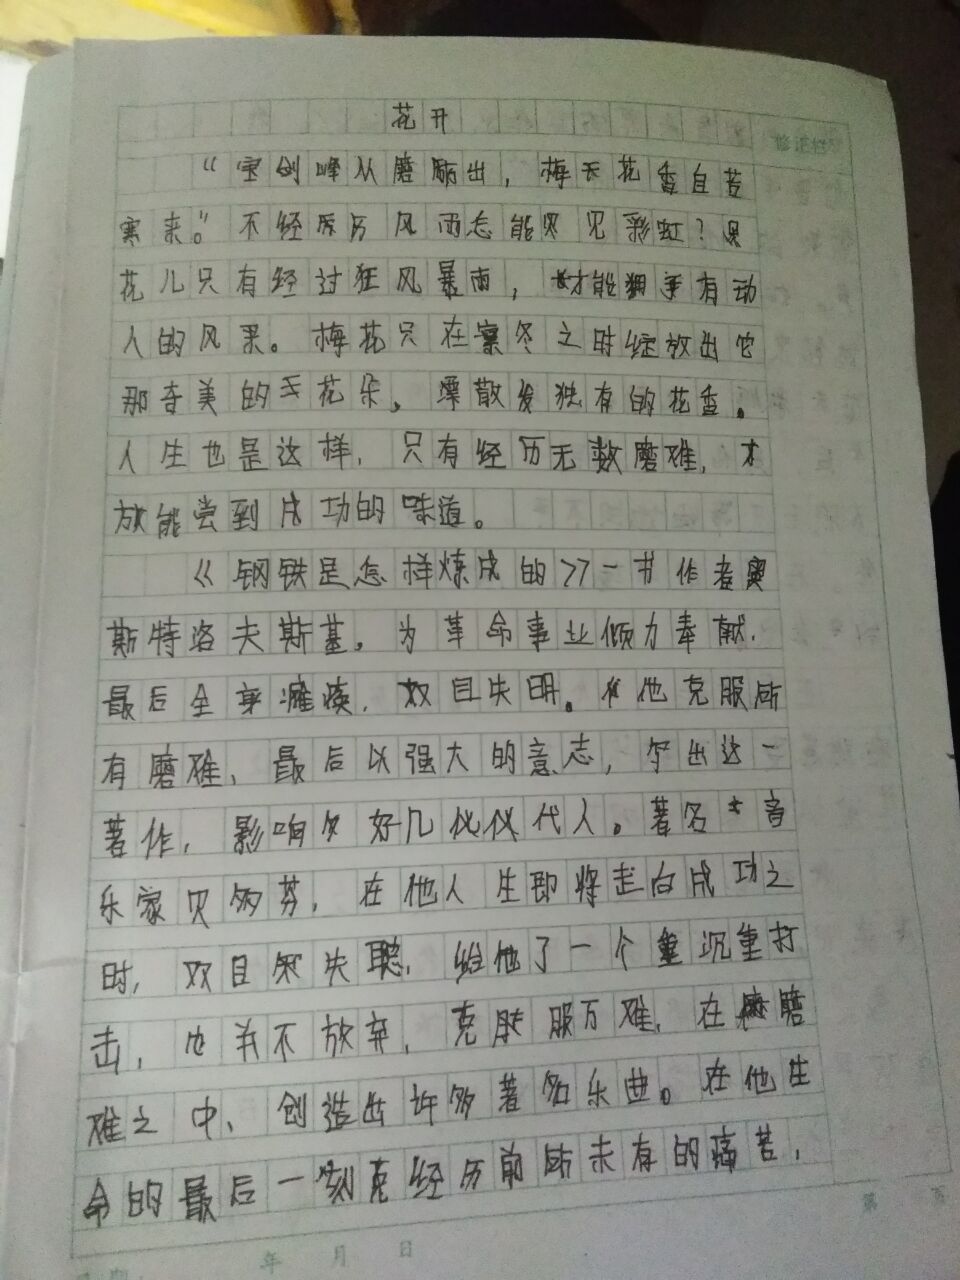 花开
“宝剑峰从磨砺出，梅花香自苦
寒来。”不经历风雨怎能见彩虹？
花儿只有经过狂风暴雨，才能拥有动
人的风采。梅花只在寒冬之时绽放出它
那奇美的花朵，飘散发独有的花香。
人生也是这样，只有经历无数磨难，才
放能尝到成功的味道。
《钢铁是怎样炼成的》一书作者奥
斯特洛夫斯基。为革命事业倾力奉献，
最后全身瘫痪，双目失明。他克服所
有磨难，最后以强大的意志，写出这一
著作，影响了好几代人。著名音
乐家贝多芬，在他人生即将走向成功之
时，双目失聪，给他了一个沉重打
击，他并不放弃，克服万难，在磨
难之中，创造出许多著名乐曲。在他生
命的最后一刻经历前所未有的痛苦，
年 月 日
第 页